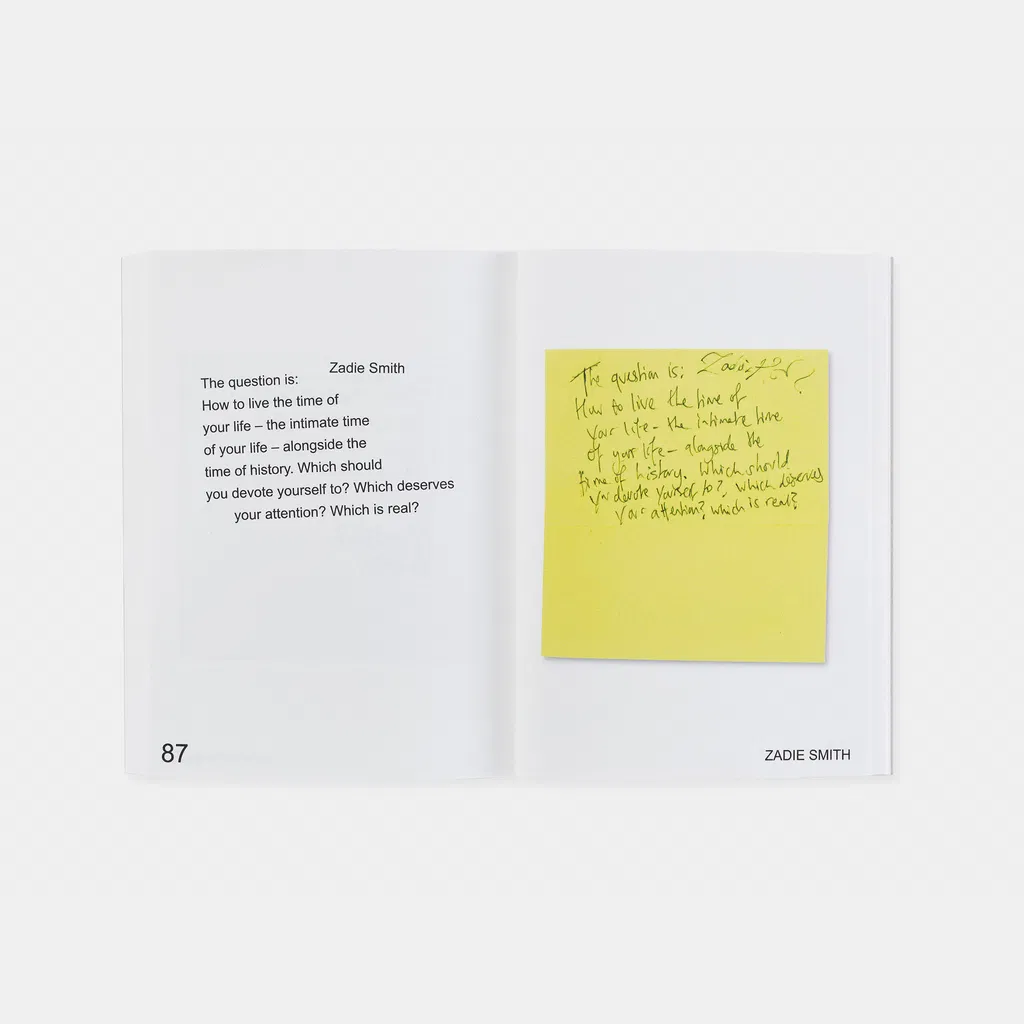 Zadie Smith
The question is:
How to live the time of
your life – the intimate time
of your life – alongside the
time of history. Which should
you devote yourself to? Which deserves
your attention? Which is real?
87
The question is:
How to live the time of
your life – the intimate time
of your life – alongside the
time of history. Which should
you devote yourself to?, which deserves
your attention?, which is real?
ZADIE SMITH